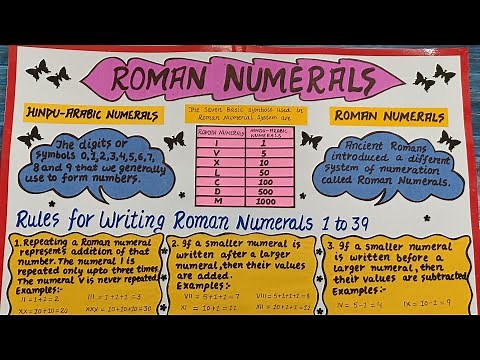 ROMAN NUMERALS
HINDU-ARABIC NUMERALS
The digits or
symbols 0,1,2,3,4,5,6,7,
8 and 9 that we generally
use to form numbers.
The Seven Basic Symbols used in
Roman Numeral System are
ROMAN NUMERALS HINDU-ARABIC NUMERALS
I 1
V 5
X 10
L 50
C 100
D 500
M 1000
ROMAN NUMERALS
Ancient Romans
introduced a different
system of numeration
called Roman Numerals.
Rules for Writing Roman Numerals 1 to 39
1. Repeating a Roman numeral
represents addition of that
number. The numeral I is
repeated only upto three times.
The numeral V is never repeated.
Examples:-
II = 1+1 = 2 III = 1+1+1 = 3
XX = 10+10 = 20 XXX = 10+10+10 = 30
2. If a smaller numeral is
written after a larger
numeral, then their values
are added.
Examples:-
VII = 5+1+1 = 7 VIII = 5+1+1+1 = 8
XI = 10+1 = 11 XII = 10+1+1 = 12
3. If a smaller numeral
is written before a
larger numeral, then
their values are subtracted
Examples:-
IV = 5-1 = 4 IX = 10-1 = 9